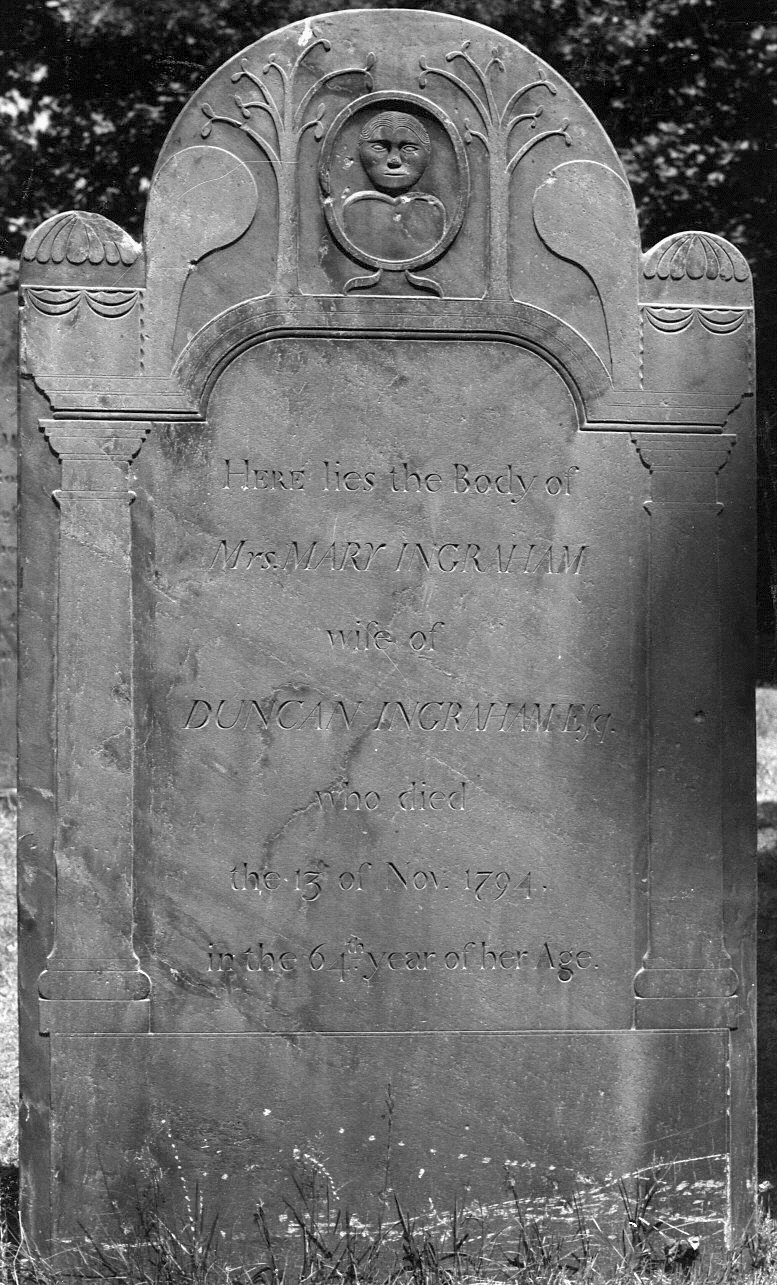 HERE lies the Body of
Mrs. MARY INGRAHAM
wife of
DUNCAN INGRAHAM Eſq.
who died
the 13 of Nov. 1794.
in the 64th year of her Age.